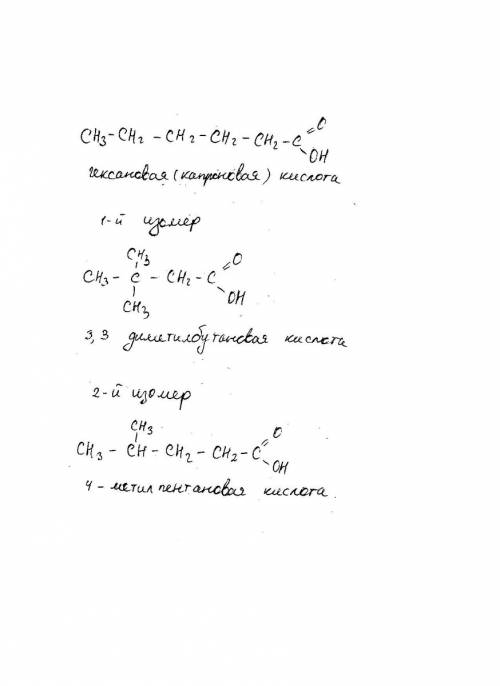 CH3-CH2-CH2-CH2-CH2-C=O
OH
гексановая (капроновая) кислота
1-й изомер
CH3
CH3-C-CH2-C=O
CH3
OH
3,3 диметилбутановая кислота
2-й изомер
CH3
CH3-CH-CH2-CH2-C=O
OH
4-метилпентановая кислота.